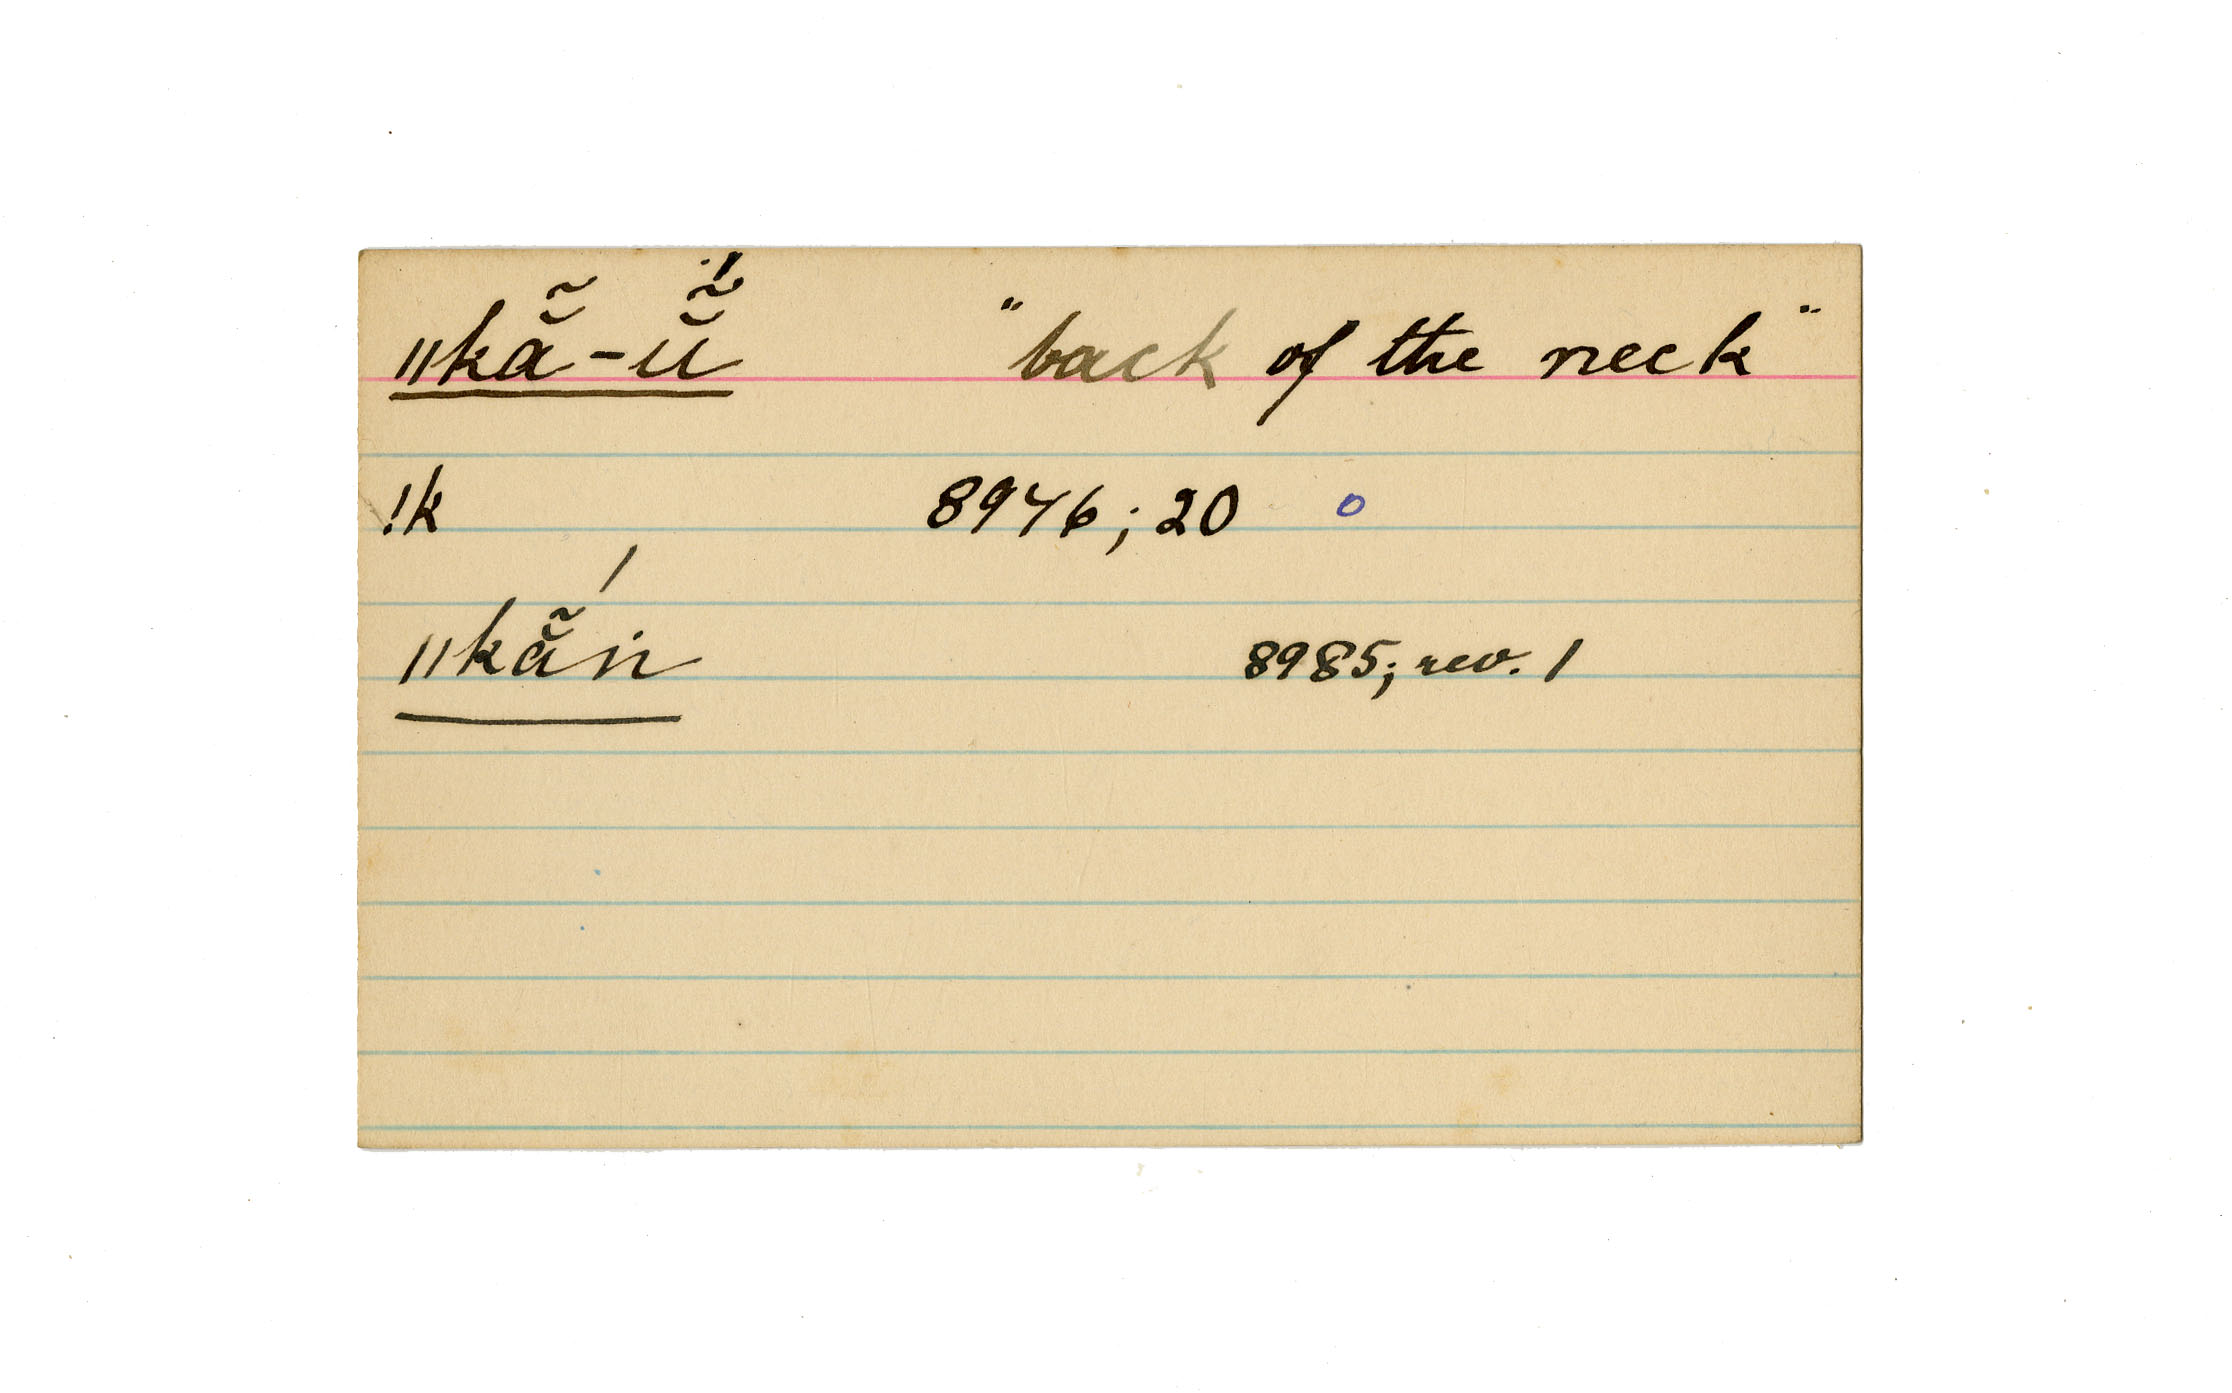 ǁkẵ-ŭ̃́ "back of the neck"
!k 8946; 20 o
ǁkẵ́ṅ 8985; rev. 1